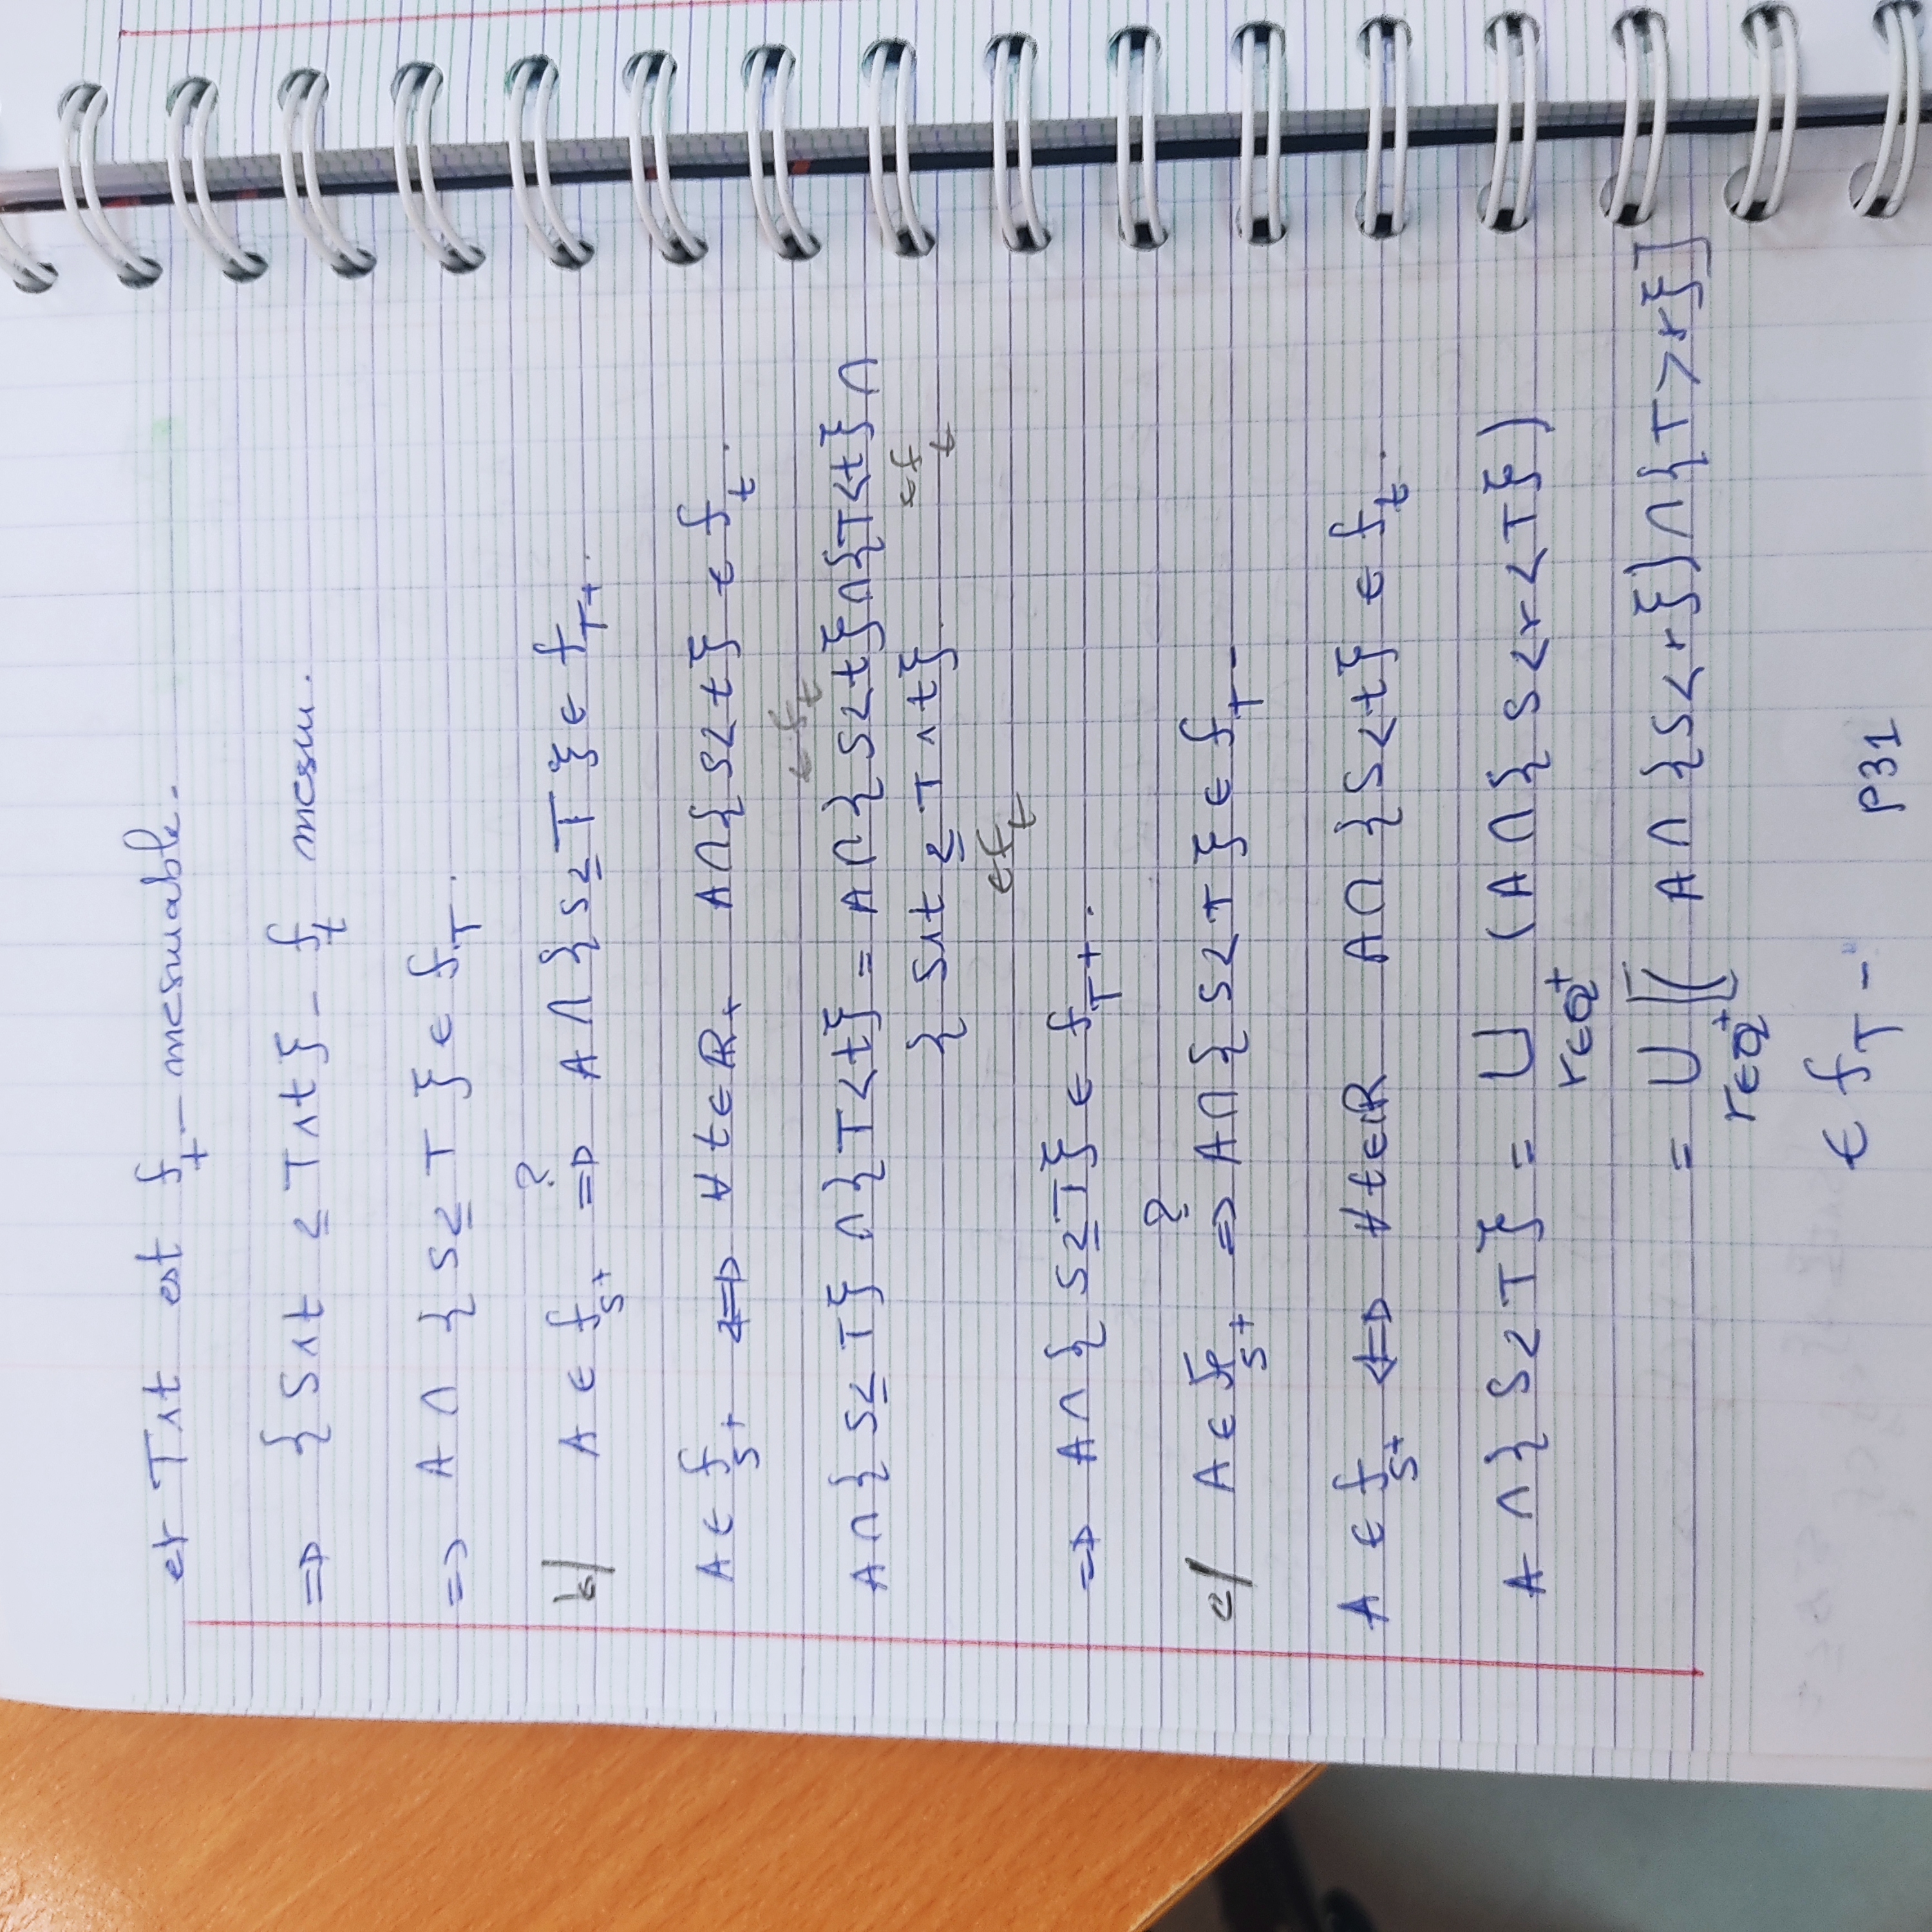 et T∧t est f_t - mesurable.
=> {S∧t ≤ T∧t} - f_t mesu.
=> A ∩ {S ≤ T} ∈ f_T.
?
b/ A ∈ f_S+ => A ∩ {S ≤ T} ∈ f_T+.
A ∈ f_S+ <=> ∀ t ∈ ℝ+ A ∩ {S < t} ∈ f_t.
∈ f_t
A ∩ {S ≤ T} ∩ {T < t} = A ∩ {S < t} ∩ {T < t} ∩
{S∧t ≤ T∧t} ∈ f_t
∈ f_t
=> A ∩ {S ≤ T} ∈ f_T+.
?
c/ A ∈ f_S+ => A ∩ {S < T} ∈ f_T-
A ∈ f_S+ <=> ∀ t ∈ ℝ A ∩ {S < t} ∈ f_t.
A ∩ {S < T} = ∪ (A ∩ {S < r < T})
r ∈ ℚ+
= ∪ [(A ∩ {S < r}) ∩ {T > r}]
r ∈ ℚ+
∈ f_T-
P31